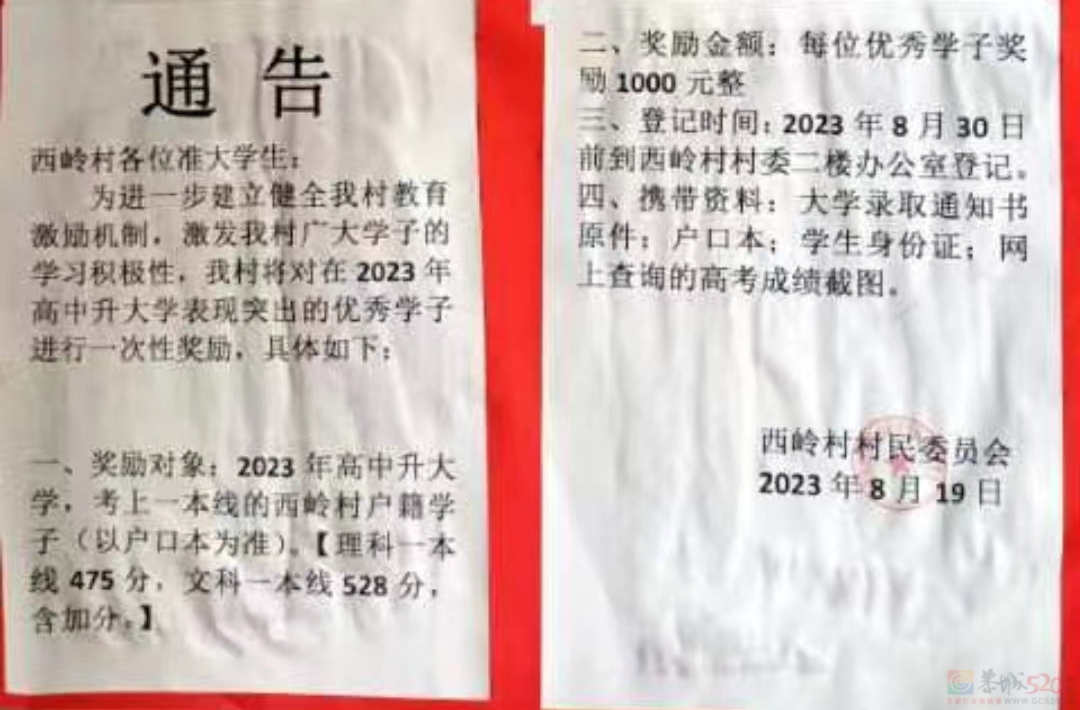 通 告
西岭村各位准大学生：
为进一步建立健全我村教育
激励机制，激发我村广大学子的
学习积极性，我村将对在 2023 年
高中升大学表现突出的优秀学子
进行一次性奖励，具体如下：
一、奖励对象：2023 年高中升大
学，考上一本线的西岭村户籍学
子（以户口本为准）。【理科一本
线 475 分，文科一本线 528 分，
含加分。】
二、奖励金额：每位优秀学子奖
励 1000 元整
三、登记时间：2023 年 8 月 30 日
前到西岭村村委二楼办公室登记。
四、携带资料：大学录取通知书
原件；户口本；学生身份证；网
上查询的高考成绩截图。
西岭村村民委员会
2023 年 8 月 19 日
恭城520